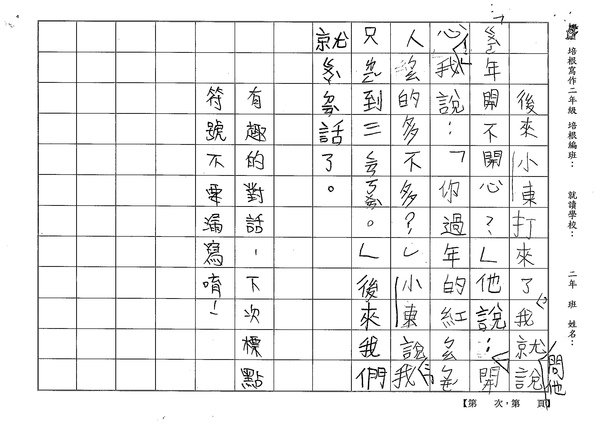 培根寫作二年級 培根編班： 就讀學校： 二年 班 姓名：
後來小東打來了，我就說問他
年開不開心？」他說：開
心，我說：「你過年的紅包
人的多不多？」小東說我
只到三。」後來我們
就話了。
有趣的對話，下次標點
符號不要漏寫唷！
【第 次，第 頁】